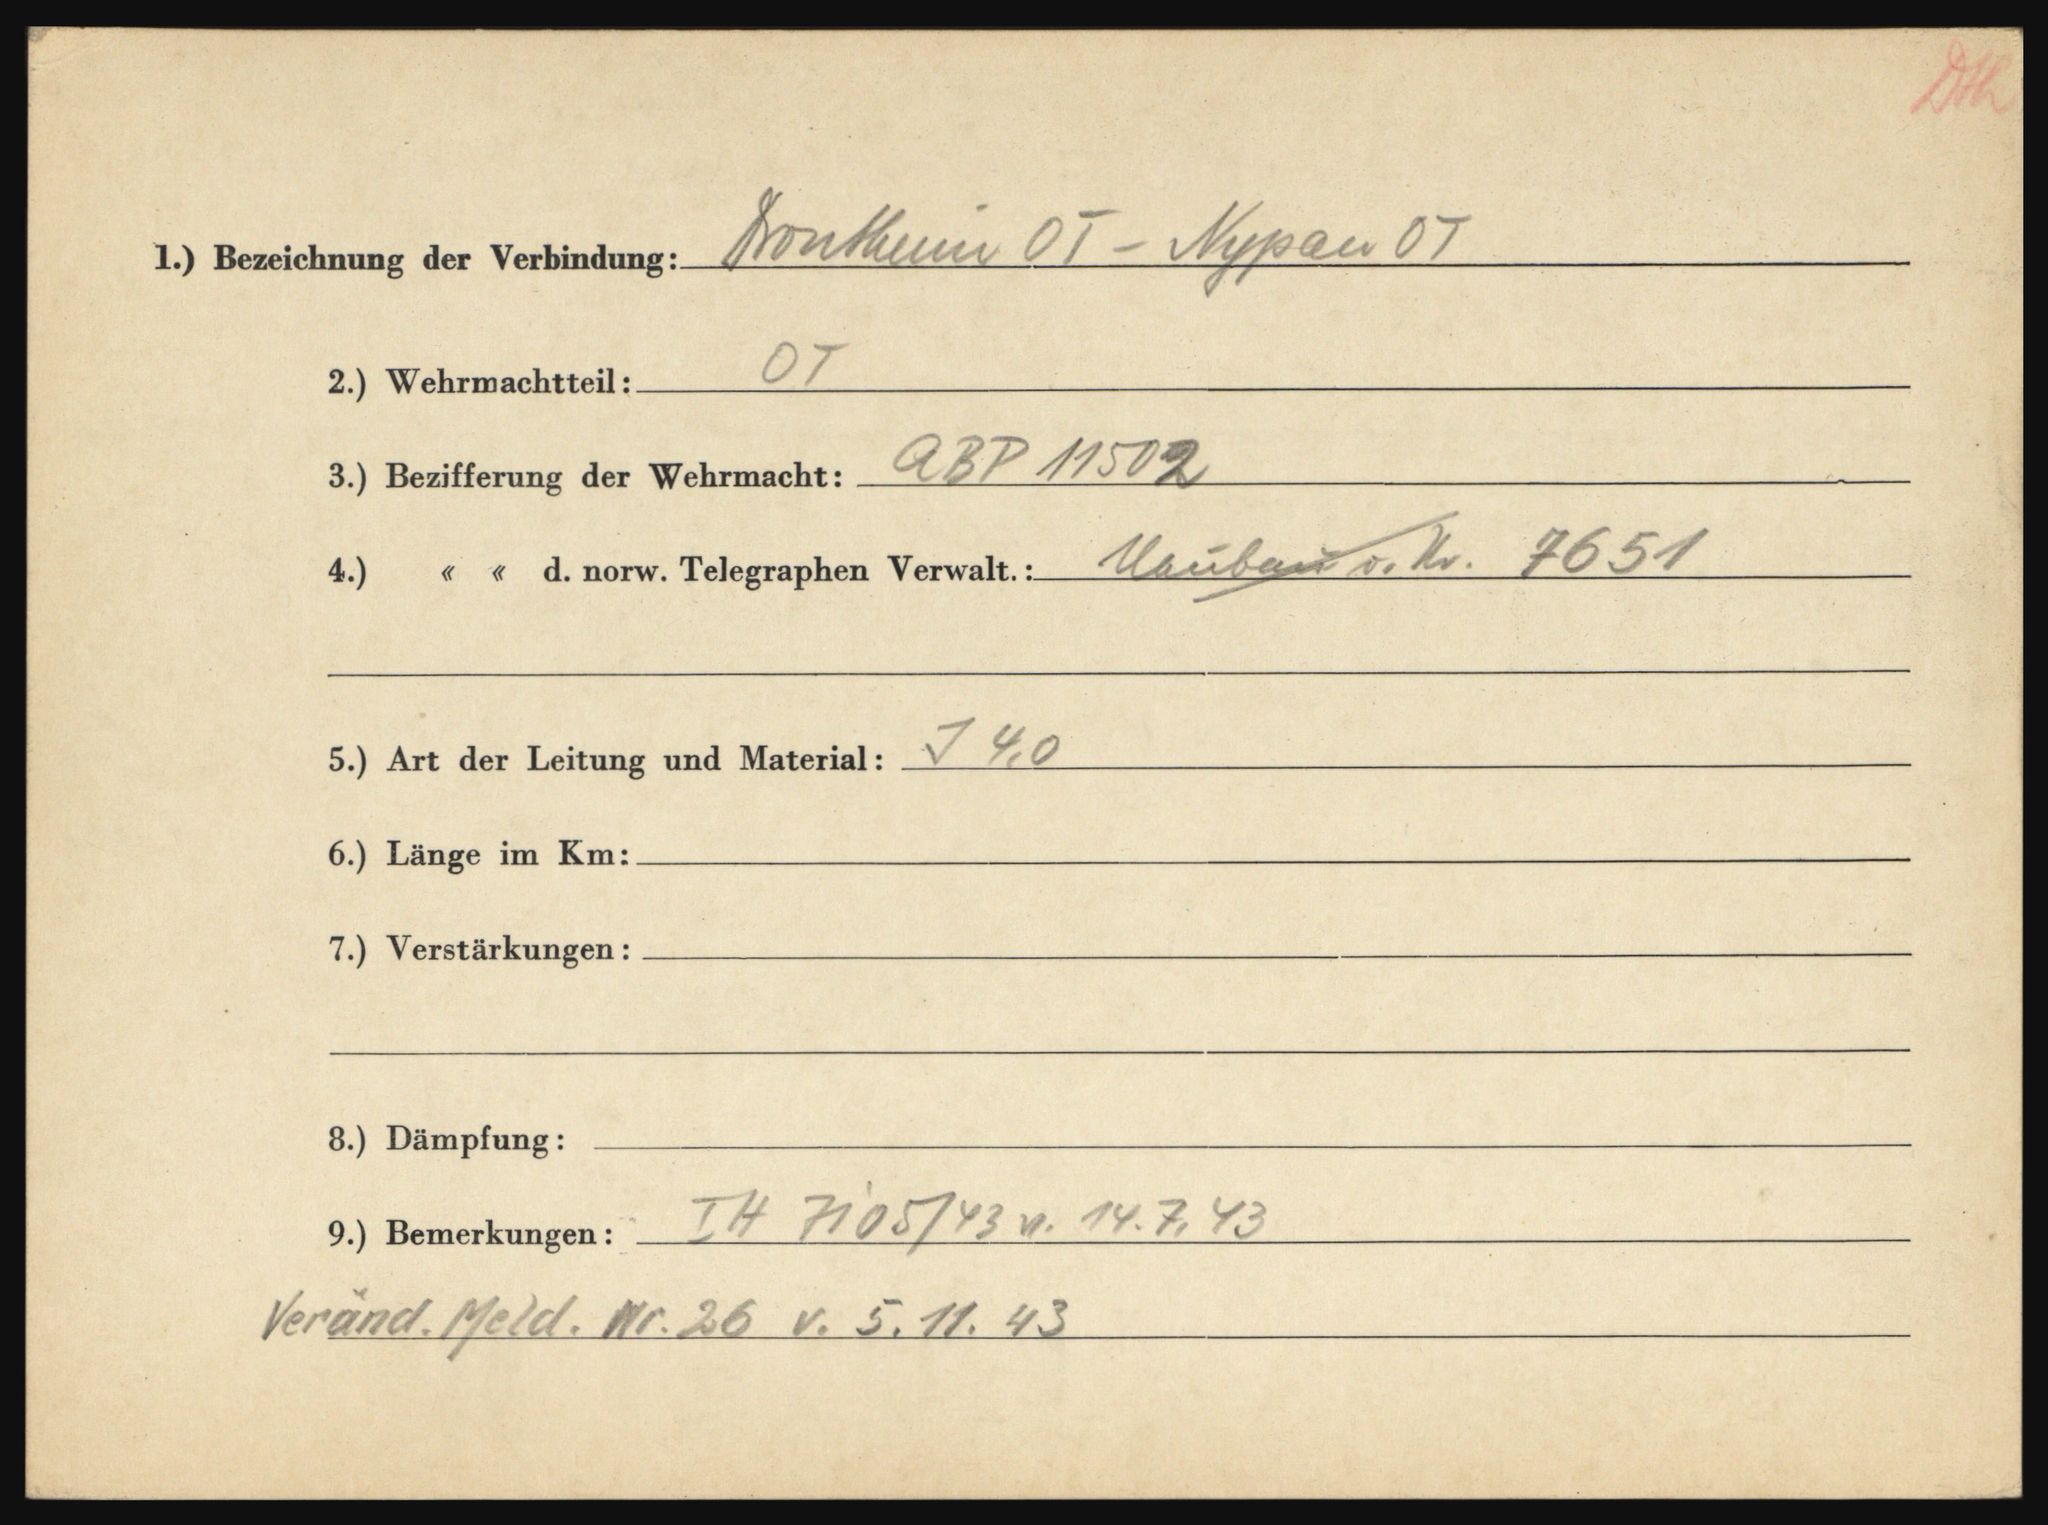 Dth
1.) Bezeichnung der Verbindung: Drontheim OT - Nypan OT
2.) Wehrmachtteil: OT
3.) Bezifferung der Wehrmacht: ABP 11502
4.) « « d. norw. Telegraphen Verwalt.: Neubau v. Nr. 7651
5.) Art der Leitung und Material: J 4,0
6.) Länge im Km:
7.) Verstärkungen:
8.) Dämpfung:
9.) Bemerkungen: TH 7105/43 v. 14.7.43
Veränd. Meld. Nr. 26 v. 5.11.43